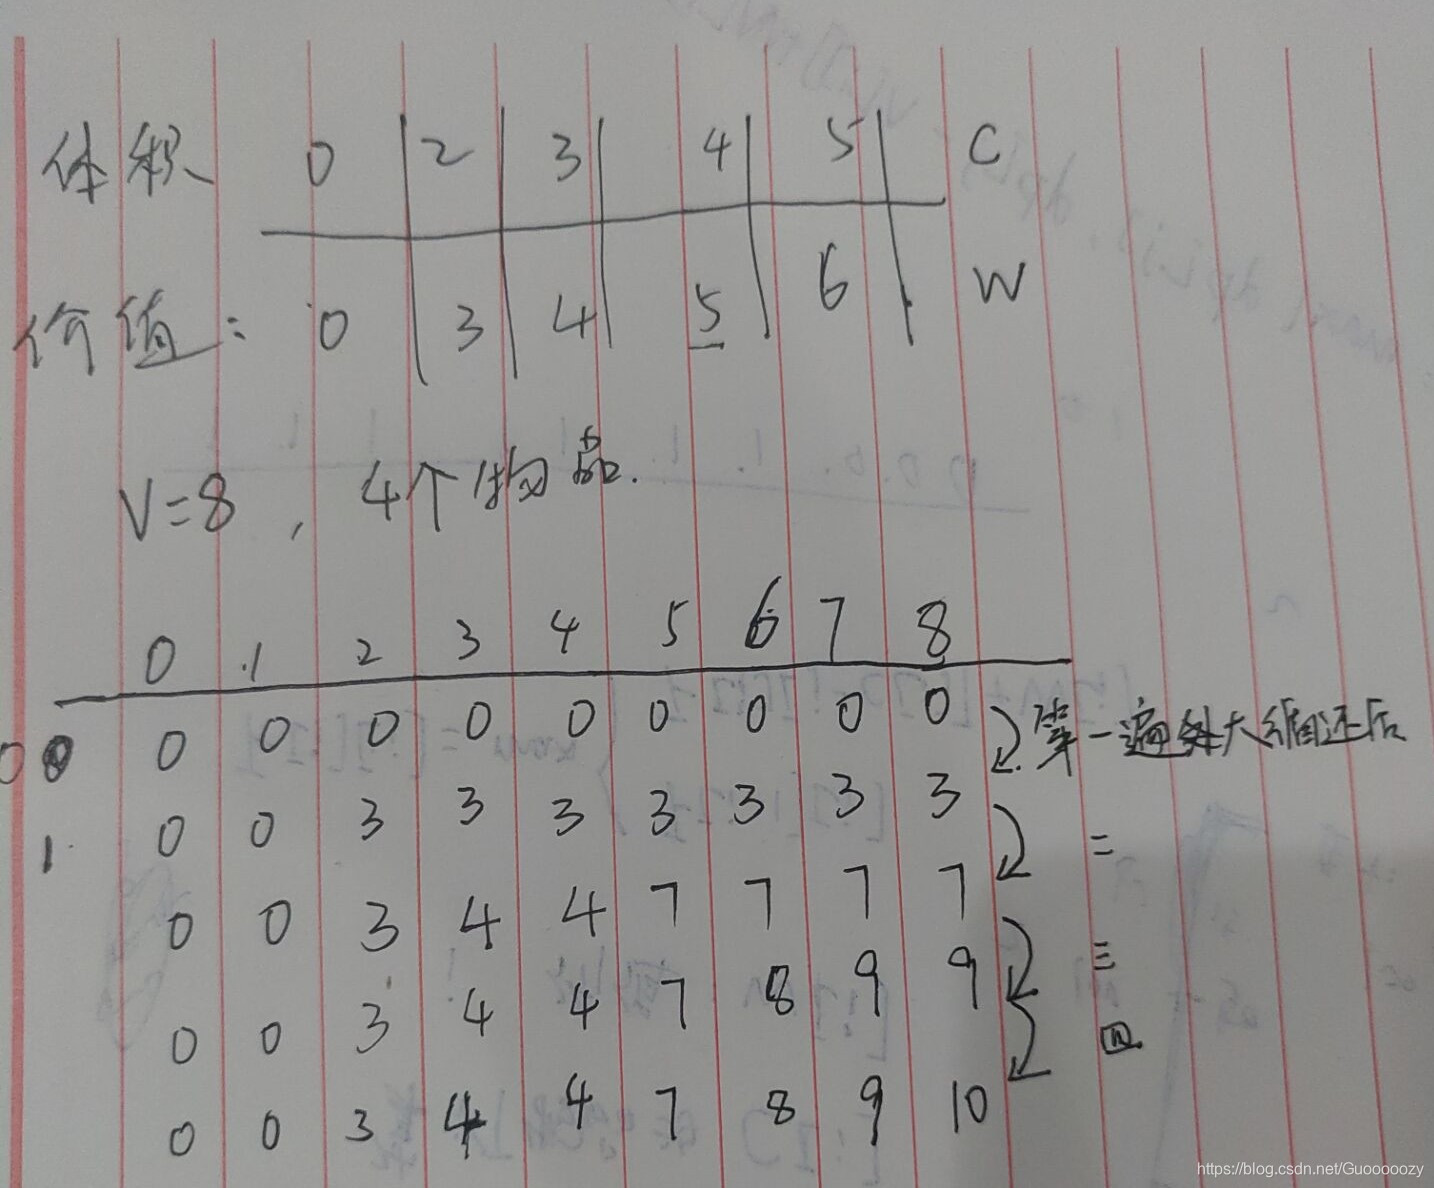 体积 0 2 3 4 5 C
价值: 0 3 4 5 6 W
V=8, 4个物品.
0 1 2 3 4 5 6 7 8
0 0 0 0 0 0 0 0 0 0 0 第一遍外大循还后
1. 0 0 3 3 3 3 3 3 3 二
0 0 3 4 4 7 7 7 7 三
0 0 3 4 4 7 8 9 9 四
0 0 3 4 4 7 8 9 10
https://blog.csdn.net/Guooooozy